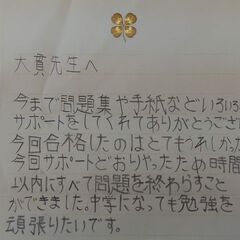 大貫先生へ
今まで問題集や手紙などいろいろ
サポートをしてくれてありがとうござい
今回合格したのはとてもうれしかっ
今回サポートどおりやったため時間
以内にすべて問題を終わらすこと
ができました。中学になっても勉強を
頑張りたいです。